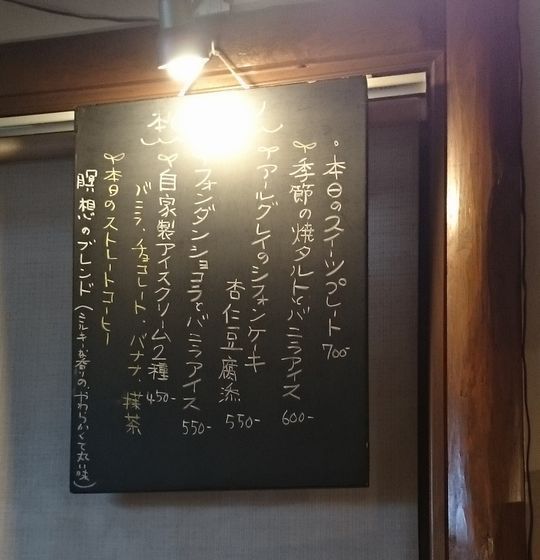 本
本日のスイーツプレート 700-
季節の焼タルトとバニラアイス 600-
アールグレイのシフォンケーキ
杏仁豆腐添 550-
フォンダンショコラとバニラアイス 550-
自家製アイスクリーム2種 450-
バニラ、チョコレート、バナナ、抹茶
本日のストレートコーヒー
瞑想のブレンド (ミルキーな香りの、やわらかくて丸い味)